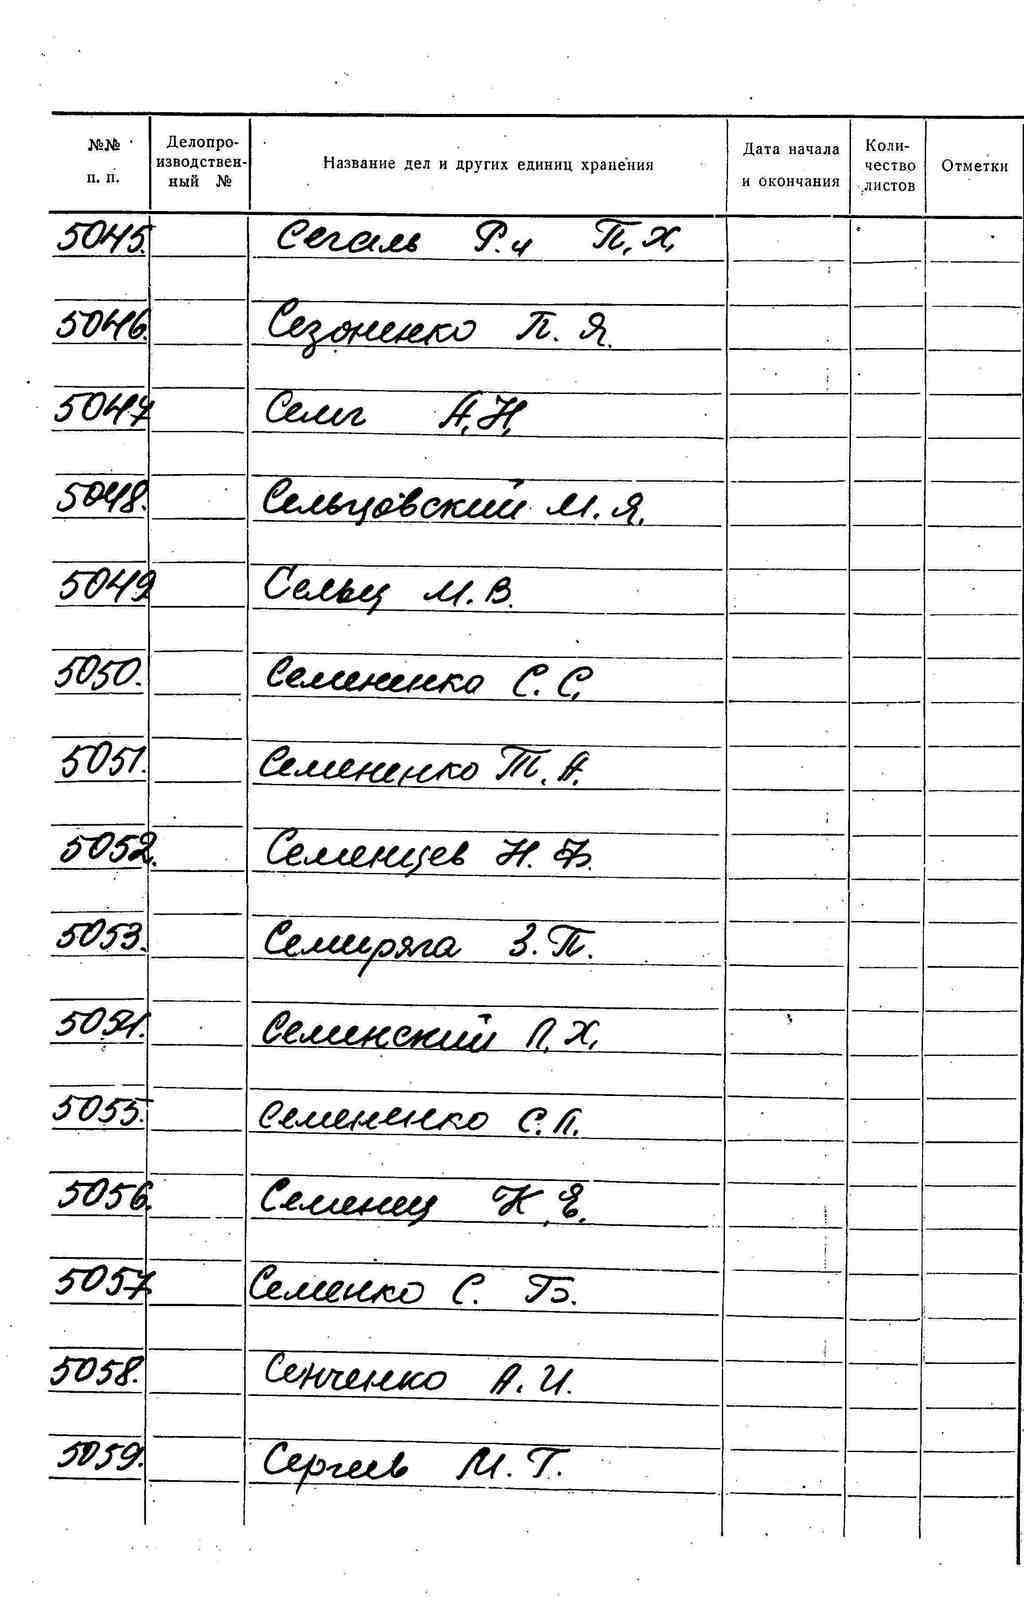 №№ п. п. Делопро-изводствен-ный № Название дел и других единиц хранения Дата начала и окончания Коли-чество листов Отметки
5045. Сегаль Р. и П. Х.
5046. Сезоненко П. Я.
5047 Селиг А. Н.
5048. Сельцовский М. Я.
5049 Сельц М. В.
5050. Семененко С. С.
5051. Семененко Т. А.
5052. Семенцев Н. Ф.
5053. Семиряга З. П.
5054. Семинский П. Х.
5055. Семененко С. П.
5056. Семенец К. Е.
5057 Семенко С. Б.
5058. Сенченко А. И.
5059. Сергеев М. Г.